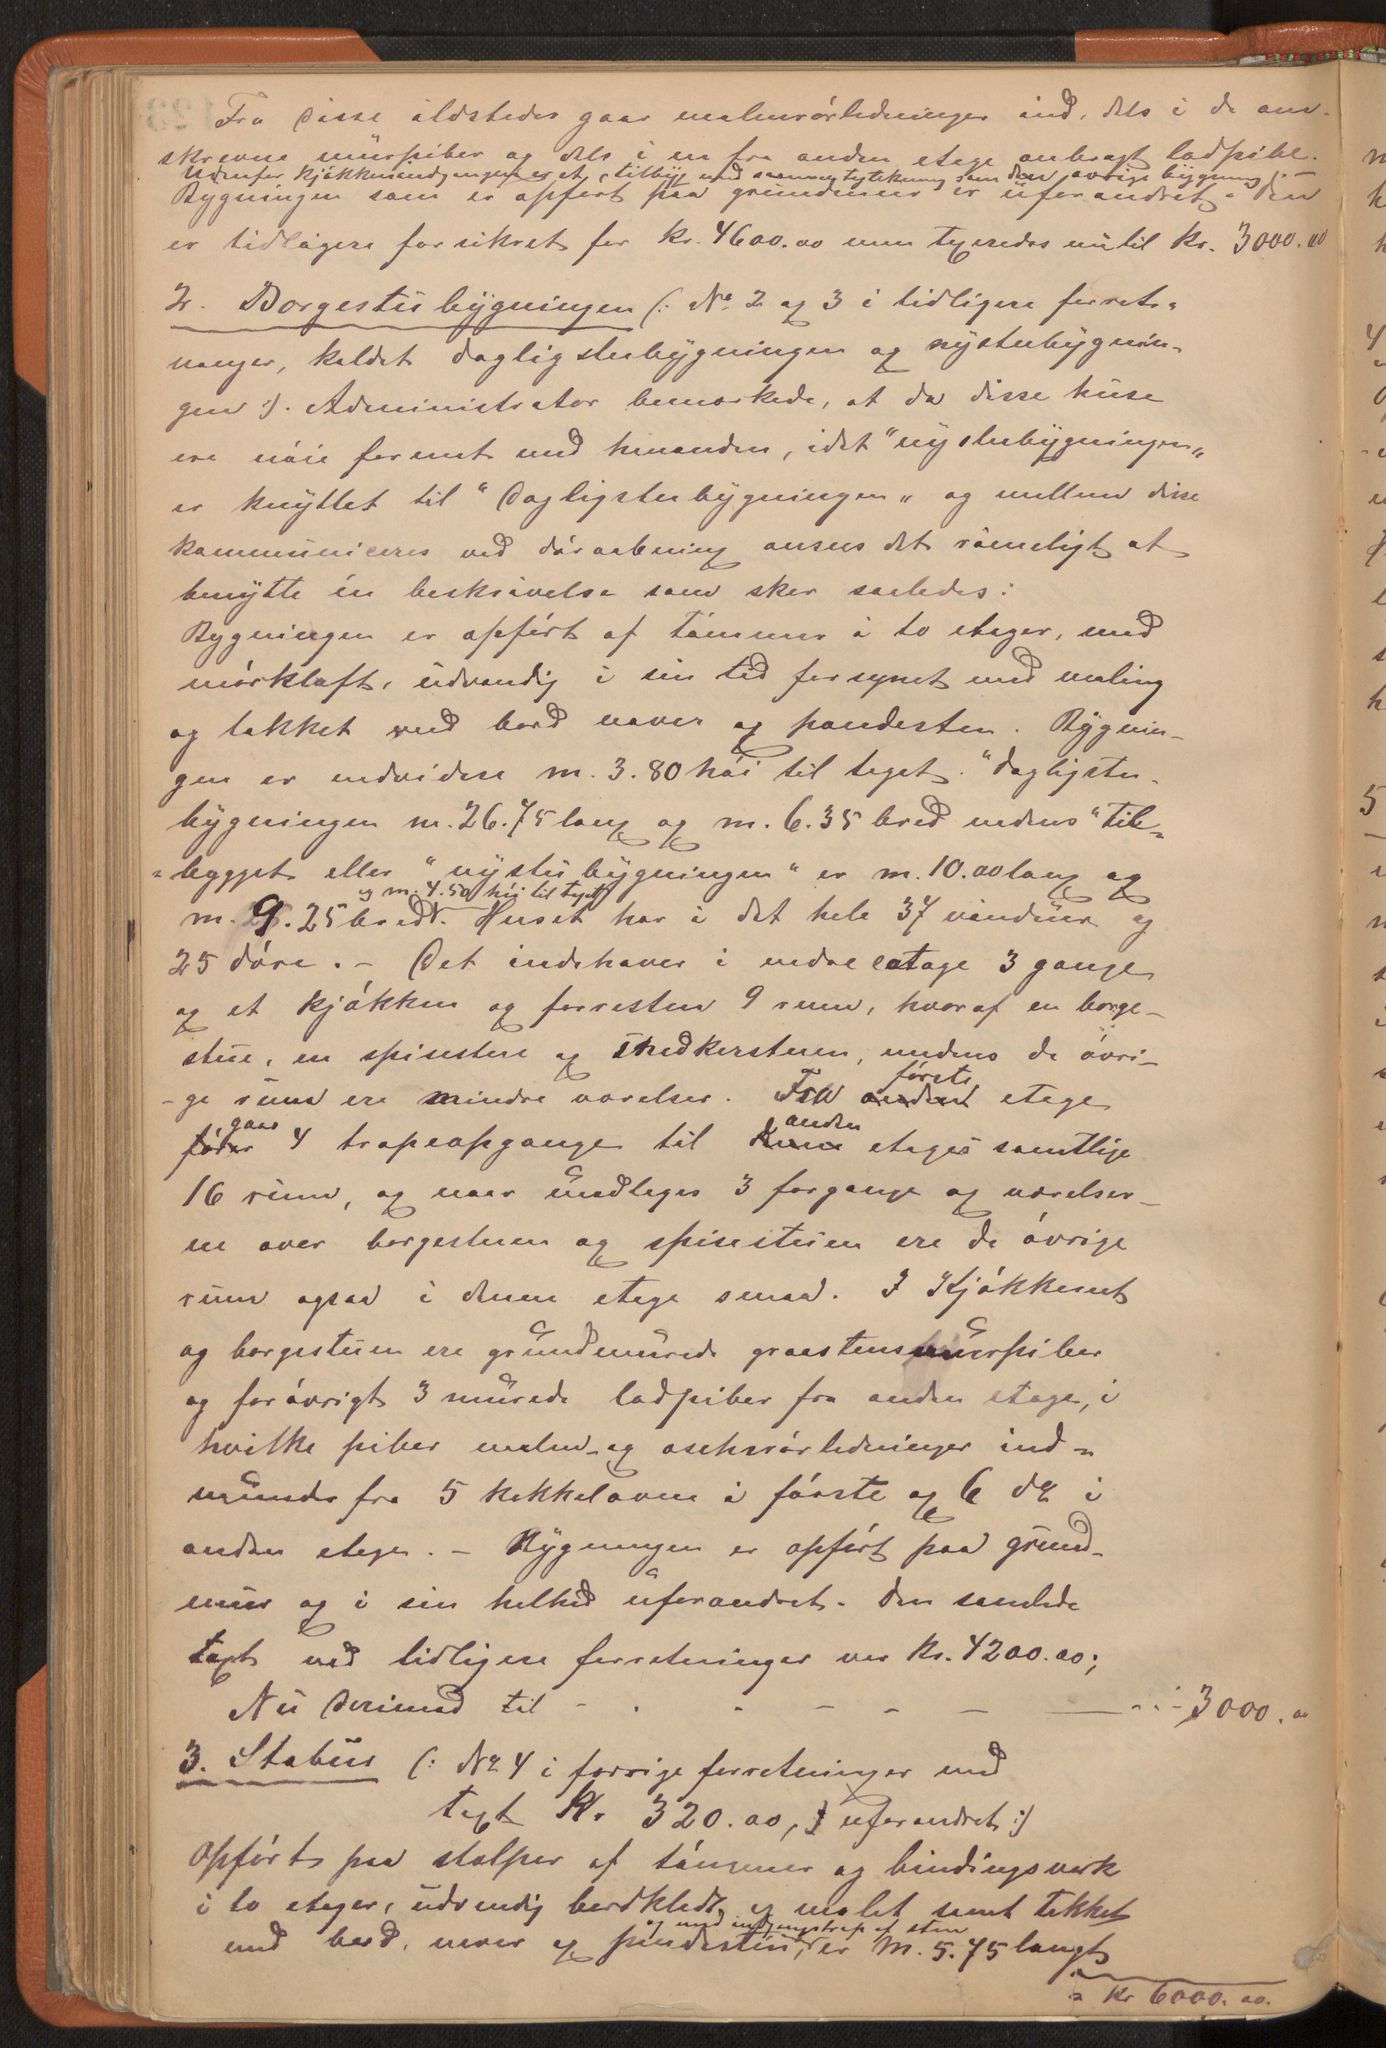 Fra disse ildsteder gaar malmrörledninger ind, dels i de om-
skrevne mürpiber og dels i en fra anden etage anbragt ladpibe.
Udenfor kjøkkenindgangen er et tilbyg med samme tegtekning som den øvrige bygning
Bygningen som er opført paa grundmur er üforandret. Den
er tidligere forsikret for kr. 4600.00 men taxeredes nu til kr. 3000.00
2. Borgestübygningen (: No 2 og 3 i tidligere forret-
ninger, kaldet dagligstubygningen og nystubygnin-
gen :). Administrator bemærkede, at da disse huse
ere nöie forenet med hinanden, idet "nystubygningen"
er knyttet til "Dagligstubygningen" og mellem disse
kommuniceres ved döraabning ansees det rimeligt at
benytte én beskrivelse som sker saaledes:
Bygningen er opfört af tömmer i to etager, med
mörkloft, udvendig i sin tid forsynet med maling
og tækket med bord næver og pandesten. Bygnin-
gen er endvidere m. 3.80 höi til taget. "Dagligstu-
bygningen m. 26.75 lang og m. 6.35 bred medens "til-
bygget eller "nystübygningen" er m. 10.00 lang og
og m. 4.50 höi til taget
m. 9.25 bredt. Huset har i det hele 37 vinduer og
25 döre. - Det indehaver i nedre etage 3 gange
og et kjökken og forresten 9 rum, hvoraf en borge-
stue, en spisestue og Snedkerstuen, medens de övri-
ge rum ere mindre værelser. Fra anden förste etage
förer gaar 4 trapeopgange til anden etages samtlige
16 rum, og naar undtages 3 forgange og værelser-
ne over borgestuen og spisestuen ere de övrige
rum ogsaa i denne etage smaa. I Kjökkenet
og borgestuen ere grundmurede graastensmurpiber
og forövrigt 3 murede ladpiber fra anden etage, i
hvilke piber malm- og askerörledninger ind-
munder fra 5 kakkelovne i förste og 6 do i
anden etage. - Bygningen er opfört paa grund-
mur og i sin helhed uforandret. Den samlede
taxt ved tidligere forretninger var kr. 4200.00;
Nu derimod til - - - - - - 3000.00
3. Stabür (: No 4 i forrige forretninger med
taxt Kr. 320.00, uforandret :)
Opfört paa stolper af tömmer og bindingsverk
i to etager, udvendig bordklædt og malet samt tækket
og med indgangstrap af sten
med bord, næver og pandesten, er m. 5.75 langt
Kr 6000.00.